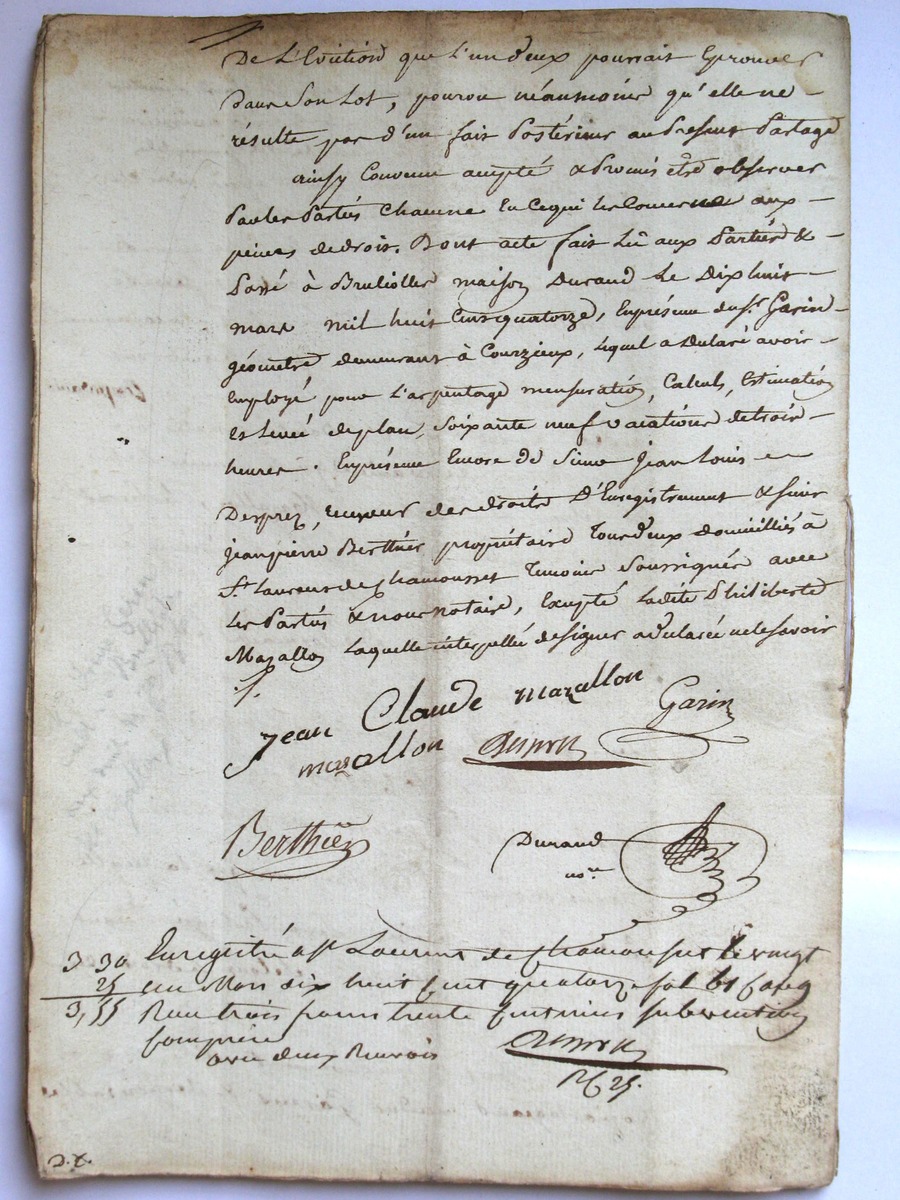 De L'Eviction que L'un d'eux pourrait Eprouver
dans Son Lot, pourvu néanmoins qu'elle ne
résulte pas d'un fait Postérieur au Présent Partage
ainsy Convenu accepté & Promis être observer
Par les Parties Chacune En Cequi les Concerne aux
peines de droit. Dont acte fait Lû aux Parties &
Passé à Brulliolles maison Durand Le Dix huit
mars mil huit Cent quatorze, En présence du Sr. Garin
géomètre demeurant à Courzieux, lequel a déclaré avoir
Employé pour L'arpentage mensuration, Calculs, Estimation
et Levée de plan, Soixante neuf vacations de trois
heures. En présence Encore de Sieur Jean Louis
Desprez, receveur des droits D'Enregistrement & Sieur
Jean pierre Berthier propriétaire Tous deux domiciliés à
St. Laurent de Chamousset Temoins Soussignés avec
Les Parties & nous notaire, Excepté Ladite Philiberte
Mazallon Laquelle interpellée de signer a déclaré ne le savoir
Jean Claude mazallon Garin
mazallon Desprez
Berthier
Durand
nore
3 30 Enregistré a St Laurent de Chamousset le vingt
25 un Mars dix huit cent quatorze fol 61
3,55 Reçu trois francs trente centimes subvention
comprise
avec deux Renvois Desprez
25.
D.t.